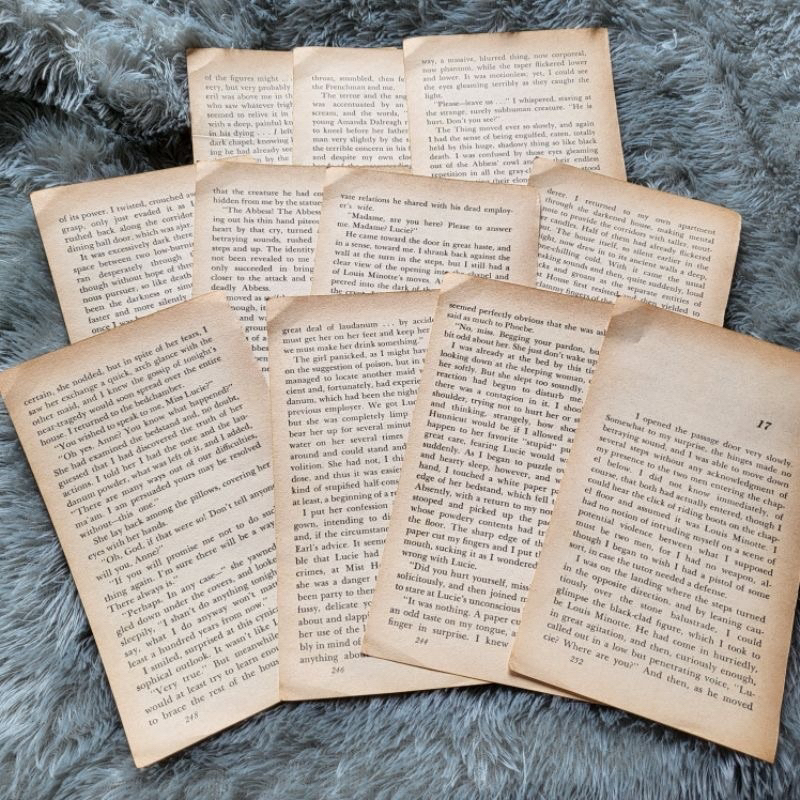 of the figures might . .
sery, but very probably
eril was above me in th
who saw whatever frigh
seemed to relive it in
with a deep, painful kn
in his dying . . . I left
dark chapel, knowing
ing he had already see
throat, stumbled, then fe
the Frenchman and me.
The terror and the ang
was accentuated by an
scream, and the words, "
young Amanda Dalreagh r
to kneel before her father
man very slightly by the s
the terrible concern in his f
and despite my own clos
way, a massive, blurred thing, now corporeal,
now phantom, while the taper flickered lower
and lower. It was motionless; yet, I could see
the eyes gleaming terribly as they caught the
light.
"Please—leave us . . ." I whispered, staring at
the strange, surely subhuman creature. "He is
hurt. Don't you see?"
The Thing moved ever so slowly, and again
I had the sense of being engulfed, eaten, totally
held by this huge, shadowy thing so like black
death. I was confused by those eyes gleaming
out of the Abbess' cowl and their endless
repetition in all the gray-cl
of its power. I twisted, crouched aw
grasp, only just evaded it as I
rushed back along the corridor
dining hall door, which was ajar.
It was excessively dark ther
space between two low-burnin
ran, desperately through
though without hope of thro
nous pursuer, so like death
been the darkness or sin
faster and more silently
once I wa
that the creature he had co
hidden from me by the statue
"The Abbess! The Abbess
ing out his thin hand piteou
heart by that cry, turned
betraying sounds, rushed
steps and up. The identity
not been revealed to me
only succeeded in bring
closer to the attack and
deadly Abbess.
moved as
vate relations he shared with his dead employ-
er's wife.
"Madame, are you here? Please to answer
me. Madame? Lucie?"
He came toward the door in great haste, and
in a sense, toward me. I shrank back against the
wall at the turn in the steps, but I still had a
clear view of the opening into
of Louis Minotte's moves. A
peered into the dark of t
derer. I returned to my own apartment
through the darkened house, making mental
note to provide the corridors with taller, more
er candles. Half of them had already flickered
t. The house itself, so silent earlier in the
ght, now drew in to its ancient walls a deep,
e-chilling cold. With it came the usual
eaking sounds and then, quite suddenly, loud
cks and groans as the separate entities of
House first resisted and then yielded to
clammy fingers of the
certain, she nodded, but in spite of her fears, I
saw her exchange a quick, arch glance with the
other maid, and I knew the gossip of tonight's
near-tragedy would soon spread over the entire
house. I returned to the bedchamber.
"You wished to speak to me, Miss Lucie?"
"Oh yes, Anne? You know what happened?"
She had examined the bedstand and, no doubt,
guessed that I had discovered the truth of her
actions. I told her I had the note and the lau-
danum powder, what was left of it, and I added,
"There are many ways out of our difficulties,
ma'am. I am persuaded yours may be resolved
without—this one."
She lay back among the pillows, covering her
eyes with her hands.
"Oh, God, if that were so! Don't tell anyone
will you, Anne?"
"If you will promise me not to do an
thing again. I'm sure there will be a way
There always is."
"Perhaps. In any case—" she yawned
gled down under the covers, and looke
sleepily, "I shan't do anything tonigh
say, what I do anyway won't mat
least a hundred years from now."
I smiled, surprised at this cynic
sophical outlook. It wasn't like L
"Very true." But meanwhile
would at least try to learn enou
to brace the rest of the hous
248
great deal of laudanum . . . by accide
must get her on her feet and keep her
we must make her drink something."
The girl panicked, as I might hav
on the suggestion of poison, but in
managed to locate another maid w
cient and, fortunately, had experien
danum, which had been the night
previous employer. We got Luc
but she was completely limp
bear her up for several minu
water on her several times
around and could stand and
volition. She had not, I thin
dose, and thus it was easie
kind of stupified half-cons
at least, a beginning of a r
I put her confession
gown, intending to di
and, if the circumstanc
Earl's advice. It seeme
ble that Lucie had
crimes, at Miss H
she was a danger t
been party to ther
fussy, delicate y
about and slapp
her use of the l
bly in mind of
anything abo
246
seemed perfectly obvious that she was as
said as much to Phoebe.
"No, miss. Begging your pardon, bu
bit odd about her. She just don't wake up
I was already at the bed by this ti
looking down at the sleeping woman,
softly. But she slept too soundly,
reaction had begun to disturb me
there was a contagion in it. I shoo
shoulder, trying not to hurt her or s
and thinking, strangely, how sho
Huneau would be if I allowed an
happen to her favorite "stupid" pu
great care, fearing Lucie would w
suddenly. As I began to puzzle
and hearty sleep, however, and
hand, I touched a white paper pa
edge of her bedstand, which fell t
Absently, with a return to my no
stooped and picked up the pac
whose powdery contents had tr
the floor. The sharp edge of th
paper cut my fingers and I put th
mouth, sucking it as I wondered
wrong with Lucie.
"Did you hurt yourself, miss
solicitously, and then joined m
to stare at Lucie's unconscious
"It was nothing. A paper cu
an odd taste on my tongue, a
finger in surprise. I knew
244
17
I opened the passage door very slowly.
Somewhat to my surprise, the hinges made no
betraying sound, and I was able to move down
several steps without any acknowledgment of
my presence to the two men entering the chap-
el below. I did not know immediately, of
course, that both had actually entered, though I
could hear the click of riding boots on the chap-
el floor and assumed it was Louis Minotte. I
had no notion of intruding myself on a scene of
potential violence between what I supposed
must be two men, for I had no weapon, al-
though I began to wish I had a pistol of some
sort, in case the tutor needed my defense.
I was on the landing where the steps turned
in the opposite direction, and by leaning cau-
tiously over the stone balustrade, I could
glimpse the black-clad figure, which I took to
be Louis Minotte. He had come in hurriedly,
in great agitation, and then, curiously enough,
called out in a low but penetrating voice, "Lu-
cie? Where are you?" And then, as he moved
252